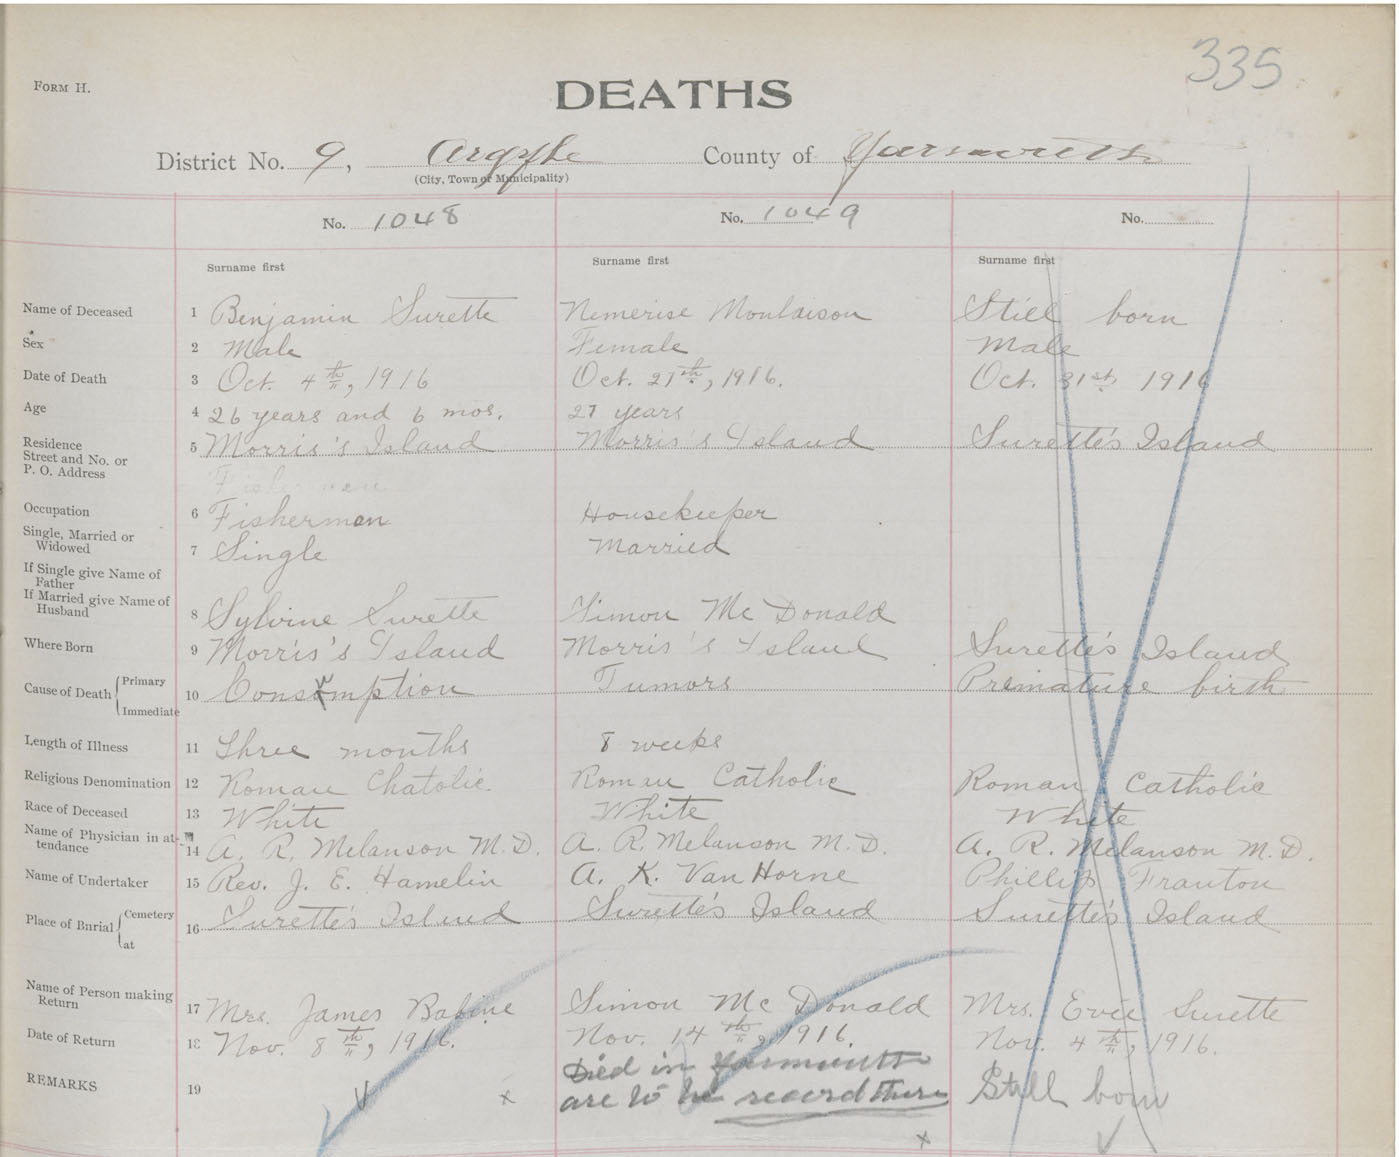 335
FORM H.
DEATHS
District No. 9, Argyle County of Yarmouth
(City, Town or Municipality)
No. 1048 No. 1049 No.
Surname first Surname first Surname first
Name of Deceased 1 Benjamin Surette Nemerise Moulaison Still born
Sex 2 Male Female Male
Date of Death 3 Oct. 4th, 1916 Oct. 27th, 1916. Oct. 31st 1916
Age 4 26 years and 6 mos. 27 years
Residence Street and No. or P. O. Address 5 Morris's Island Morris's Island Surette's Island
Fishermen
Occupation 6 Fisherman Housekeeper
Single, Married or Widowed 7 Single Married
If Single give Name of Father
If Married give Name of Husband 8 Sylvine Surette Simon Mc Donald
Where Born 9 Morris's Island Morris's Island Surette's Island
Cause of Death Primary Immediate 10 Consumption Tumors Premature birth
Length of Illness 11 Three months 8 weeks
Religious Denomination 12 Roman Chatolic. Roman Catholic Roman Catholic
Race of Deceased 13 White White White
Name of Physician in attendance 14 A. R. Melanson M.D. A. R. Melanson M.D. A. R. Melanson M.D.
Name of Undertaker 15 Rev. J. E. Hamelin A. K. Van Horne Phillip Franton
Place of Burial Cemetery at 16 Surette's Islund Surette's Island Surette's Island
Name of Person making Return 17 Mrs. James Babine Simon Mc Donald Mrs. Evée Surette
Date of Return 18 Nov. 8th, 1916. Nov. 14th, 1916. Nov. 4th, 1916.
REMARKS 19 Died in Yarmouth Still born
are to be record there